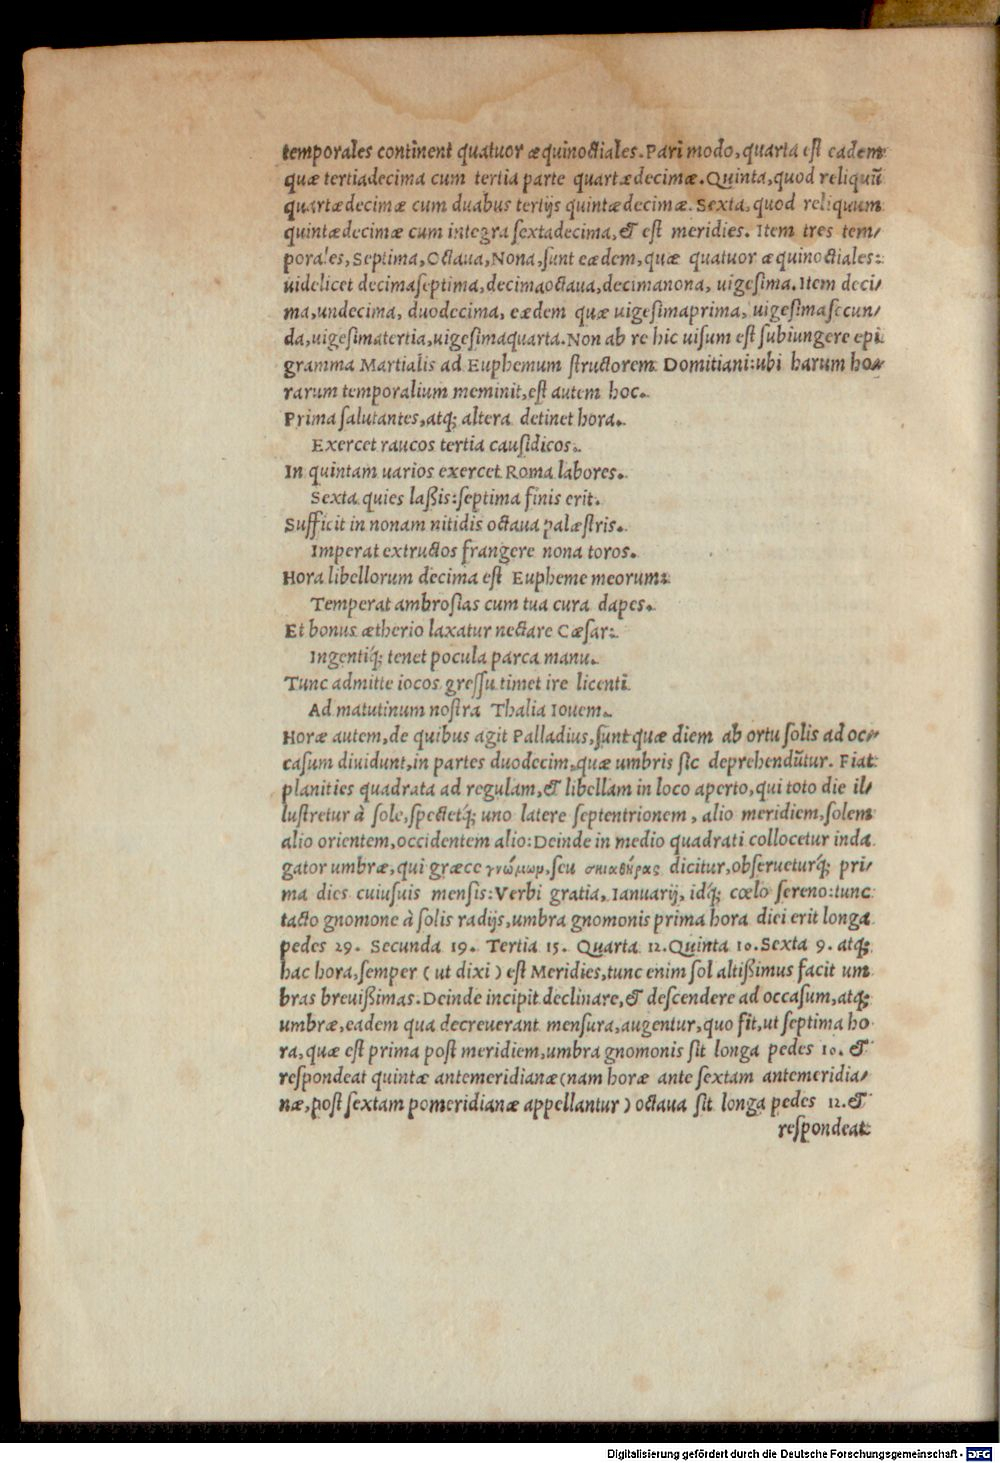 temporales continent quatuor æquinoctiales. Pari modo, quarta est eadem
quæ tertiadecima cum tertia parte quartædecimæ. Quinta, quod reliquũ
quartædecimæ cum duabus tertijs quintædecimæ. Sexta, quod reliquum
quintædecimæ cum integra sextadecima, & est meridies. Item tres tem/
porales, Septima, Octaua, Nona, sunt eædem, quæ quatuor æquinoctiales:
uidelicet decimaseptima, decimaoctaua, decimanona, uigesima. Item deci/
ma, undecima, duodecima, eædem quæ uigesimaprima, uigesimasecun/
da, uigesimatertia, uigesimaquarta. Non ab re hic uisum est subiungere epi
gramma Martialis ad Euphemum structorem Domitiani: ubi harum ho/
rarum temporalium meminit, est autem hoc.
Prima salutantes, atq; altera detinet hora.
Exercet raucos tertia causidicos.
In quintam uarios exercet Roma labores.
Sexta quies laßis: septima finis erit.
Sufficit in nonam nitidis octaua palæstris.
Imperat extructos frangere nona toros.
Hora libellorum decima est Eupheme meorum:
Temperat ambrosias cum tua cura dapes.
Et bonus ætherio laxatur nectare Cæsar:
Ingentiq́; tenet pocula parca manu.
Tunc admitte iocos gressu timet ire licenti
Ad matutinum nostra Thalia Iouem.
Horæ autem, de quibus agit Palladius, sunt quæ diem ab ortu solis ad oc/
casum diuidunt, in partes duodecim, quæ umbris sic deprehendũtur. Fiat
planities quadrata ad regulam, & libellam in loco aperto, qui toto die il/
lustretur à sole, spectetq́; uno latere septentrionem, alio meridiem, solem
alio orientem, occidentem alio: Deinde in medio quadrati collocetur inda
gator umbræ, qui græce γνώμωμ, seu σκιαθήρας dicitur, obserueturq́; pri/
ma dies cuiusuis mensis: Verbi gratia, Ianuarij, idq́; cœlo sereno: tunc
tacto gnomone à solis radijs, umbra gnomonis prima hora diei erit longa
pedes 29. Secunda 19. Tertia 15. Quarta 12. Quinta 10. Sexta 9. atq;
hac hora, semper ( ut dixi ) est Meridies, tunc enim sol altißimus facit um
bras breuißimas. Deinde incipit declinare, & descendere ad occasum, atq;
umbræ, eadem qua decreuerant mensura, augentur, quo fit, ut septima ho
ra, quæ est prima post meridiem, umbra gnomonis sit longa pedes 10. &
respondeat quintæ antemeridianæ (nam horæ ante sextam antemeridia/
næ, post sextam pomeridianæ appellantur ) octaua sit longa pedes 12. &
respondeat
Digitalisierung gefördert durch die Deutsche Forschungsgemeinschaft - DFG